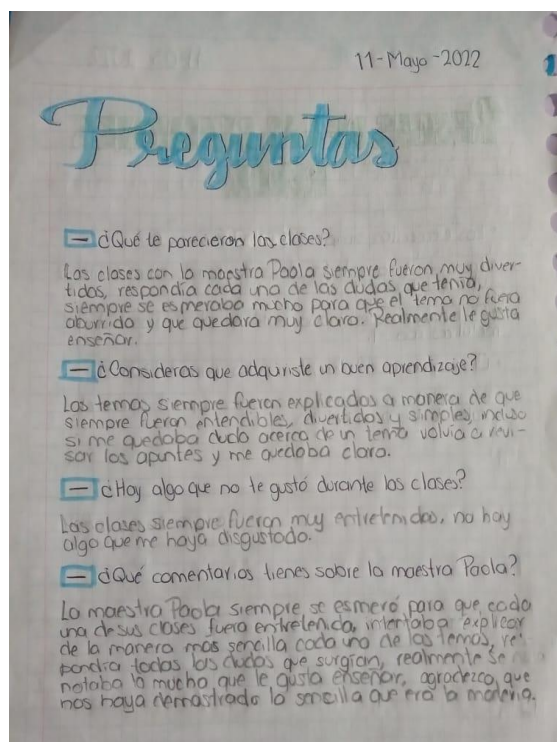 11-Mayo-2022
Preguntas
— ¿Qué te parecieron las clases?
Las clases con la maestra Paola siempre fueron muy diver-
tidas, respondía cada una de las dudas que tenía,
siempre se esmeraba mucho para que el tema no fuera
aburrido y que quedara muy claro. Realmente le gusta
enseñar.
— ¿Consideras que adquiriste un buen aprendizaje?
Los temas siempre fueron explicados a manera de que
siempre fueran entendibles, divertidos y simples, incluso
si me quedaba duda acerca de un tema volvía a revi-
sar los apuntes y me quedaba claro.
— ¿Hay algo que no te gustó durante las clases?
Las clases siempre fueron muy entretenidas, no hay
algo que me haya disgustado.
— ¿Qué comentarios tienes sobre la maestra Paola?
La maestra Paola siempre se esmeró para que cada
una de sus clases fuera entretenida, intentaba explicar
de la manera más sencilla cada uno de los temas, res-
pondía todas las dudas que surgían, realmente se
notaba lo mucho que le gusta enseñar, agradezco que
nos haya demostrado lo sencilla que era la materia.